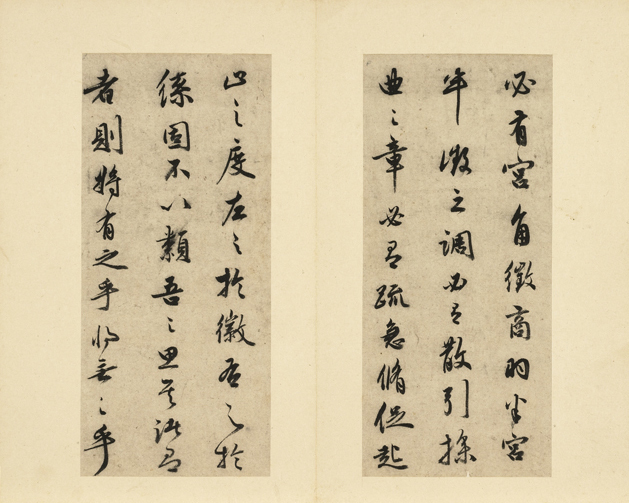 必有宮角徵商羽半宮
半徵之調必有散引操
曲之章必有疏急脩促起
止之度左之於徽右之於
絲固不以類吾之思其誰為
者則將有之乎將無之乎